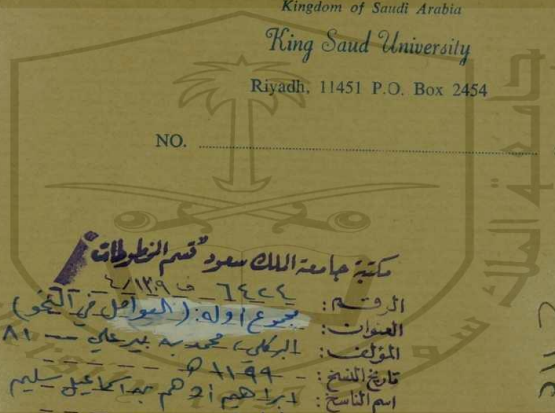 Kingdom of Saudi Arabia
King Saud University
Riyadh, 11451 P.O. Box 2454
NO.
مكتبة جامعة الملك سعود "قسم المخطوطات"
الرقم: ٦٤٢٤ ف ١٣٩/٤
العنوان: مجموع أوله: (العوامل في النحو)
المؤلف: البركلي، محمد بن بير علي — ٨١
تاريخ النسخ: ١١٩٩ هـ
اسم الناسخ: ابراهيم ادهم بن اسماعيل سليم